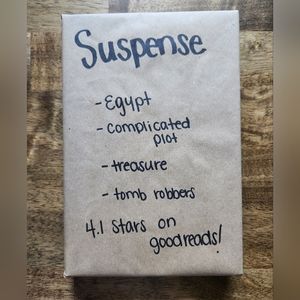 Suspense
- Egypt
- complicated
plot
- treasure
- tomb robbers
4.1 stars on
goodreads!